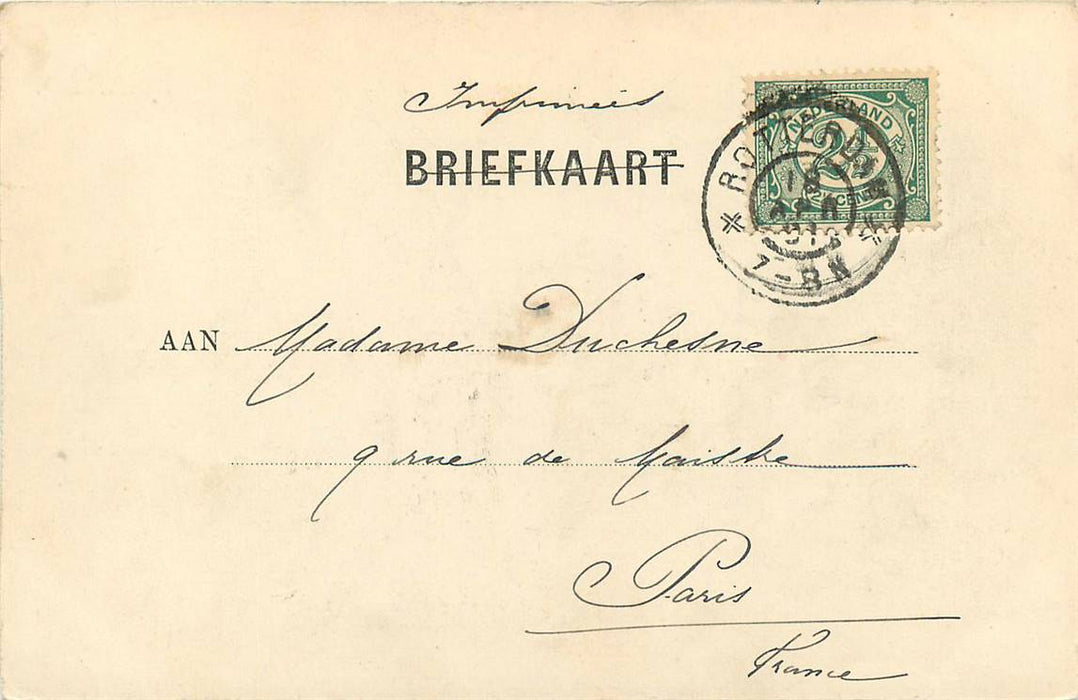 Imprimés
BRIEFKAART
NEDERLAND
2½
CENT
ROTTERDAM
18
APR
01
7-8N
AAN Madame Duchesne
9 rue de Maistre
Paris
France